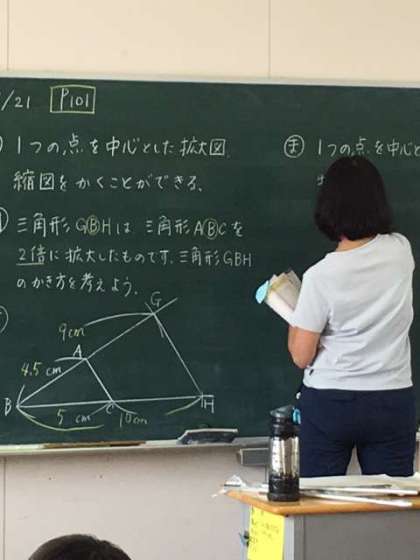 /21 P101
1つの点を中心とした拡大図、
縮図をかくことができる、
三角形GBHは、三角形ABCを
2倍に拡大したものです。三角形GBH
のかき方を考えよう。
ま 1つの点を中心と
G
9cm
A
4.5cm
B
5cm
C
10cm
H